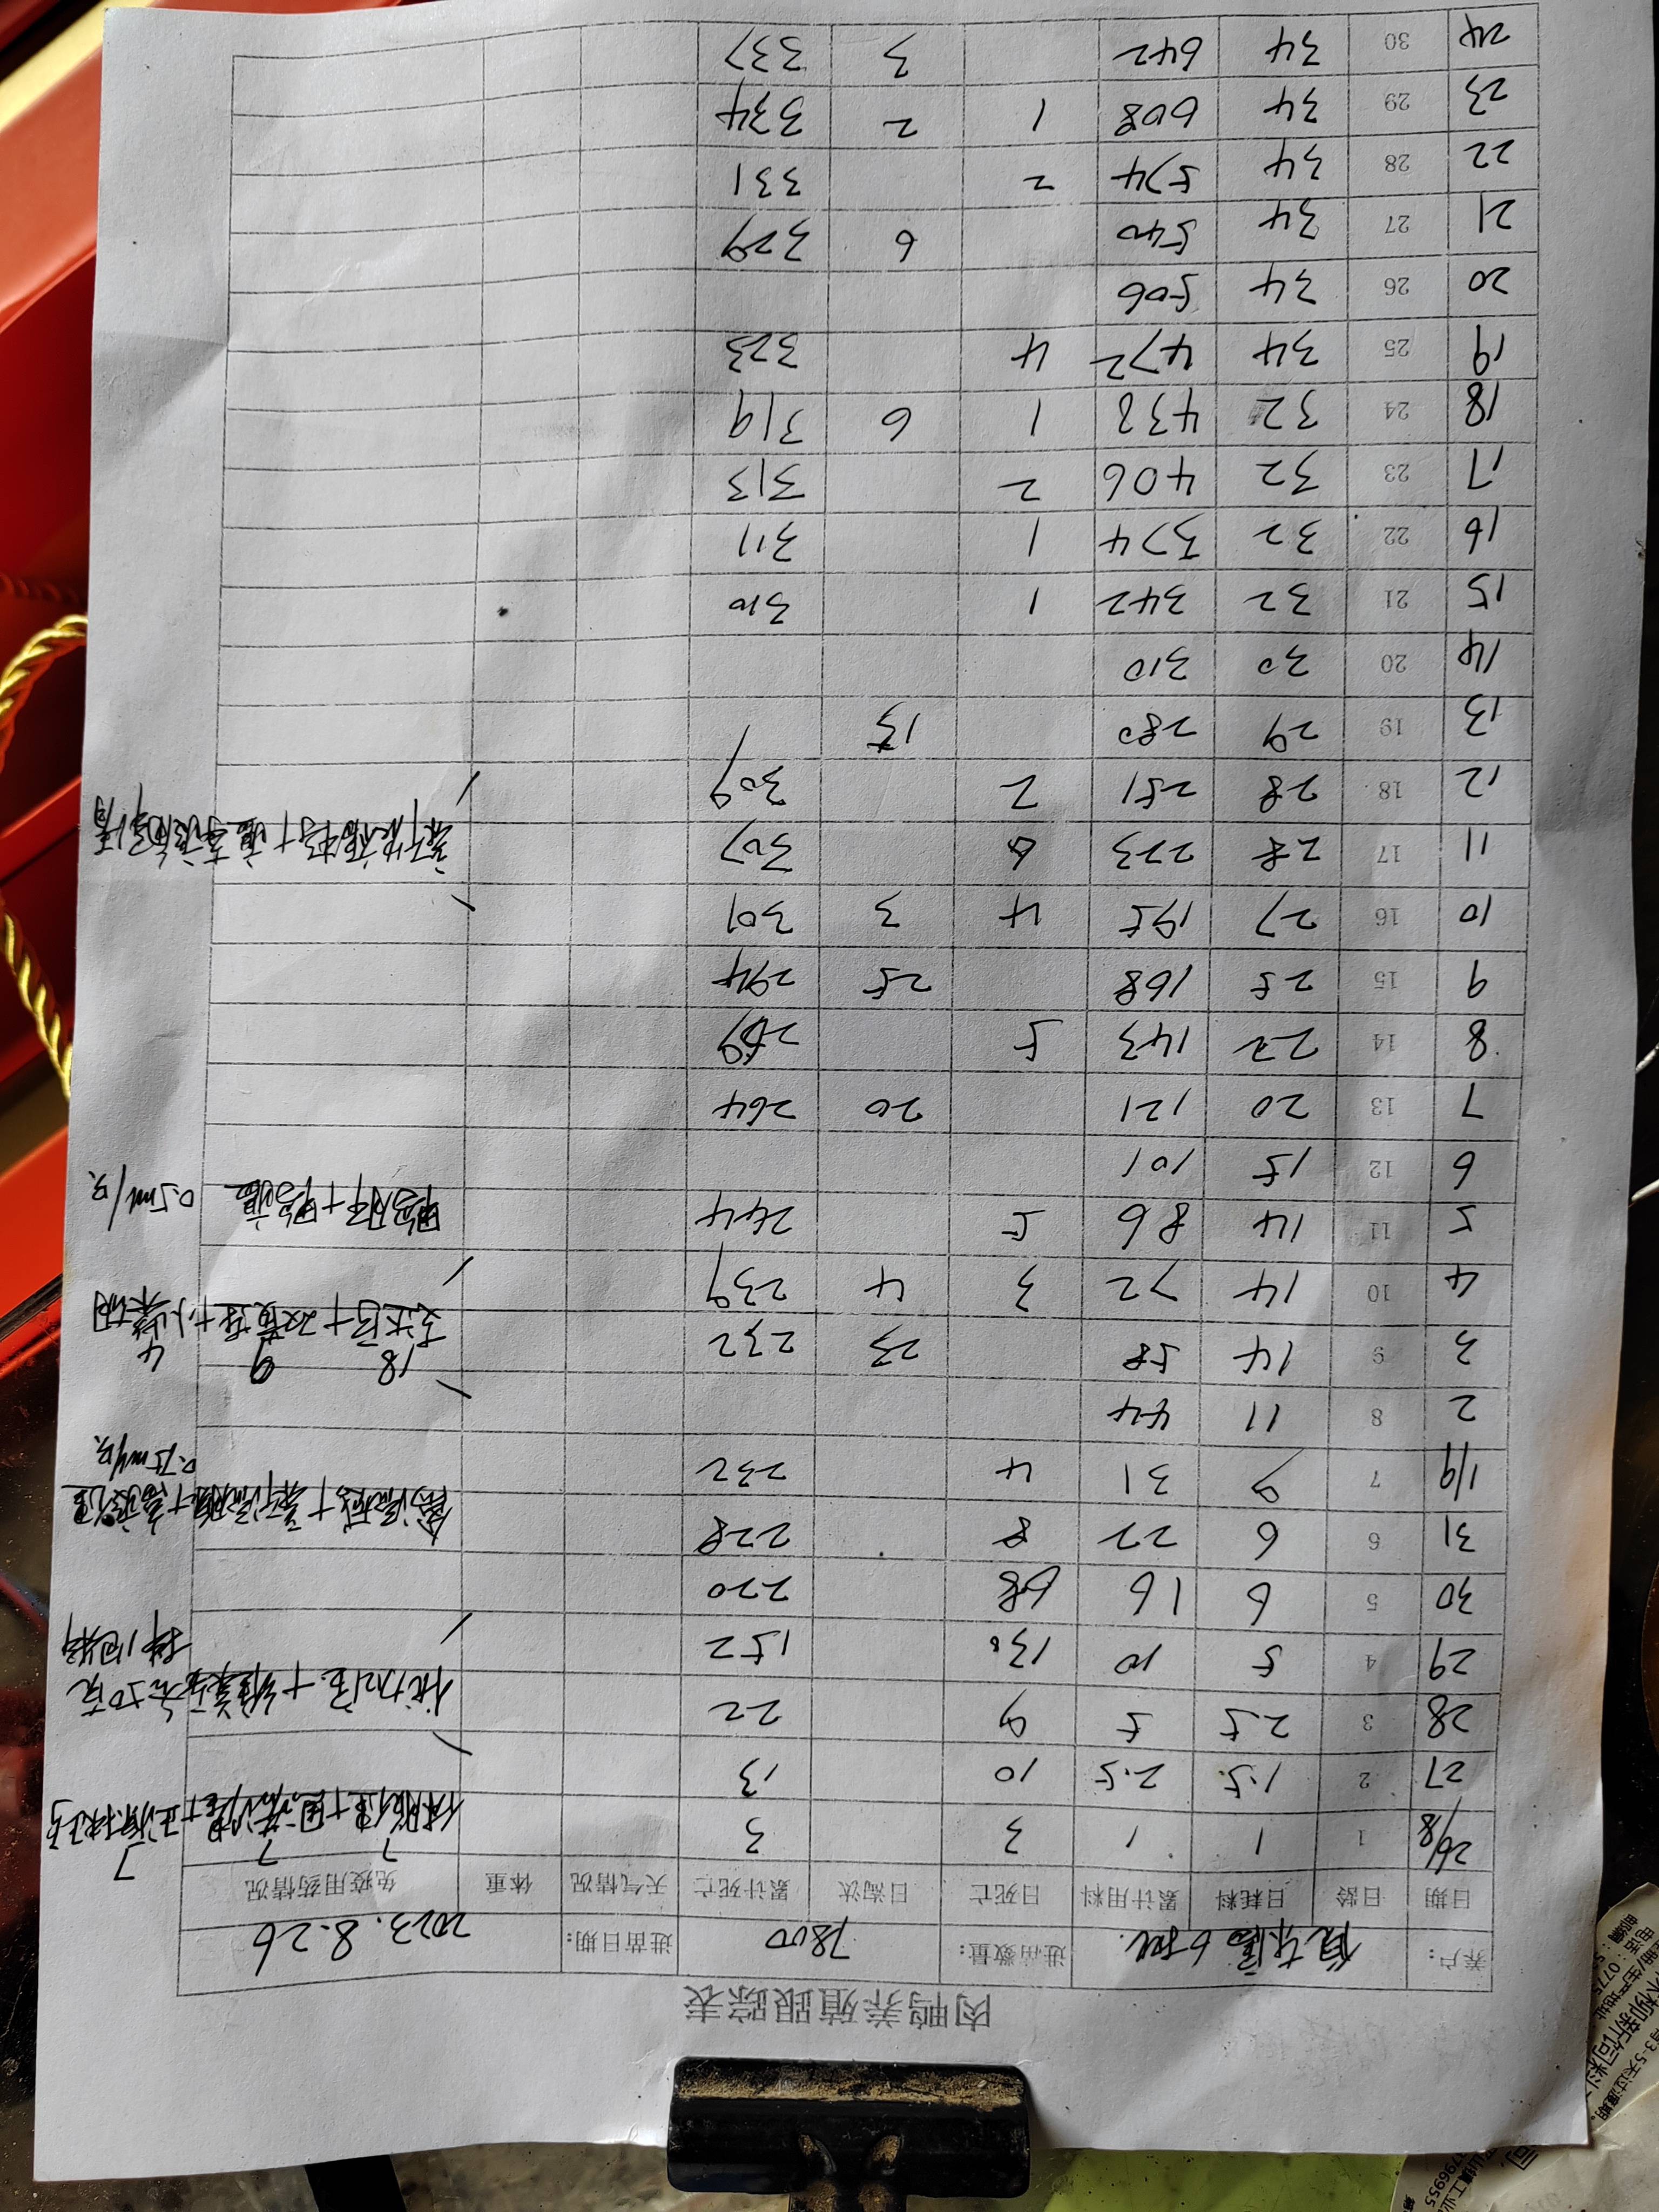 肉鸭养殖跟踪表
养户: 进苗数量: 7800 进苗日期: 2023.8.26
日期 日龄 日耗料 累计用料 日死亡 日淘汰 累计死亡 天气情况 体重 免疫用药情况
26/8 1 1 1 3 3
27 2 1.5 2.5 10 13
28 3 2.5 5 9 22
29 4 5 10 130 152
30 5 6 16 68 220
31 6 6 22 8 228
1/9 7 9 31 4 232
2 8 11 44
3 9 14 58 23 232
4 10 14 72 3 4 239
5 11 14 86 5 244
6 12 15 101
7 13 20 121 20 264
8 14 22 143 5 269
9 15 25 168 25 294
10 16 27 195 4 3 301
11 17 28 223 6 307
12 18 28 251 2 309
13 19 29 280 15
14 20 30 310
15 21 32 342 1 310
16 22 32 374 1 311
17 23 32 406 2 313
18 24 32 438 1 6 319
19 25 34 472 4 323
20 26 34 506
21 27 34 540 6 329
22 28 34 574 2 331
23 29 34 608 1 2 334
24 30 34 642 3 337
7 7 7
0.75ml/只
18 9 4
鸭肝+鸭瘟 0.5ml/只